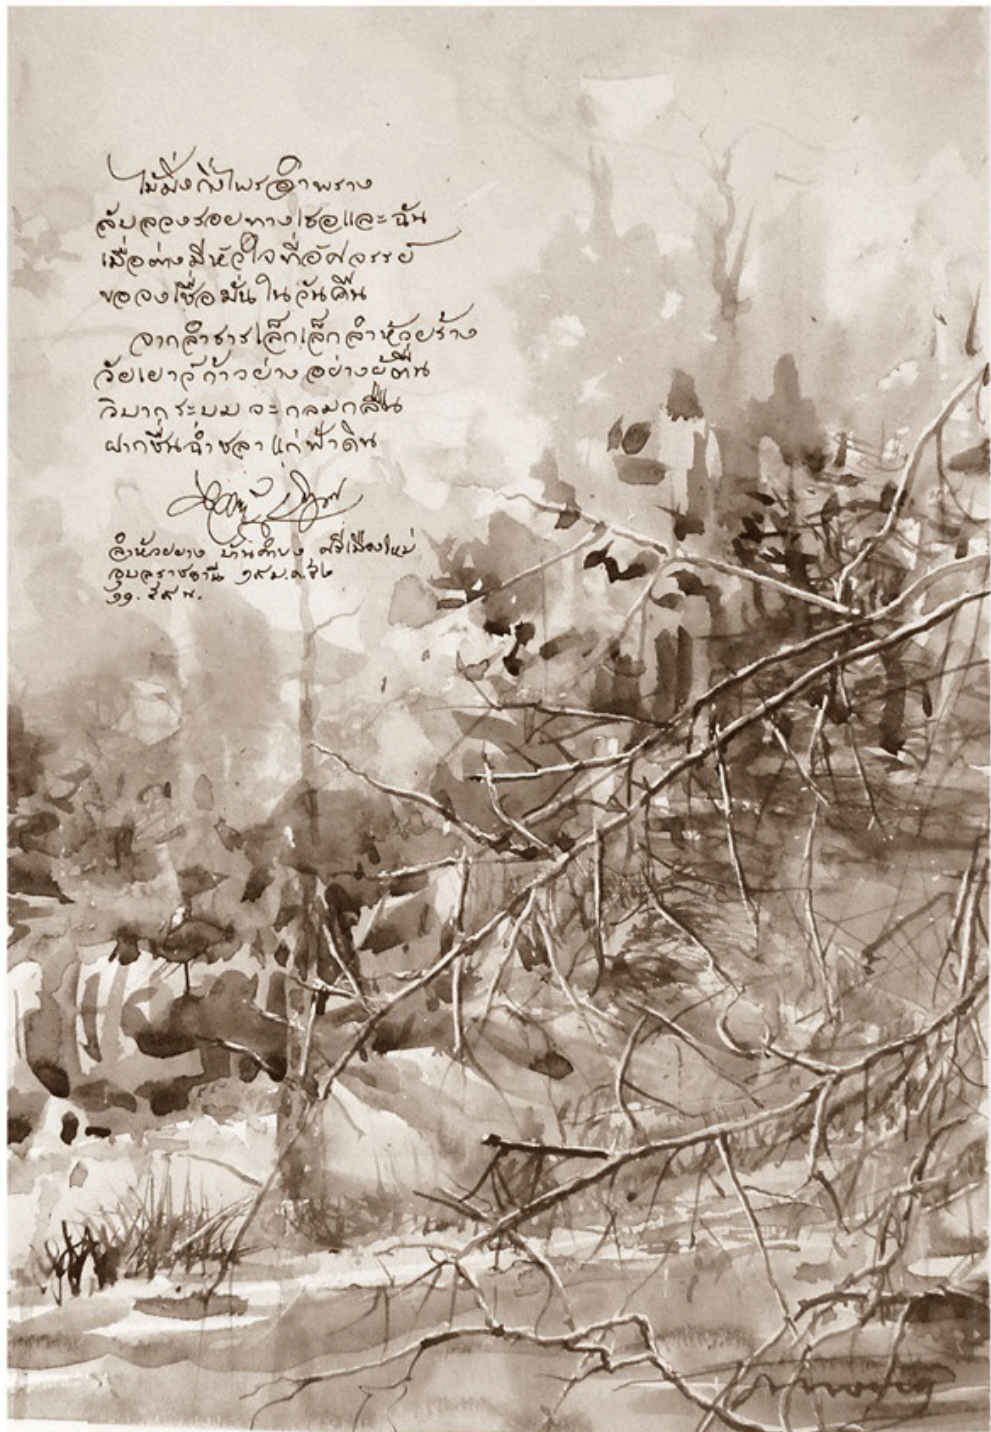 ไม้มิ่งกิ่งไพรอำพราง
ลับลวงรอยทางเธอและฉัน
เมื่อต่างมีหัวใจที่อัศจรรย์
ขอจงเชื่อมั่นในวันคืน
จากลำธารเล็กเล็กลำห้วยร้าง
วัยเยาว์ก้าวย่างอย่างยั่ตื่น
วิบากระบมจะกลมกลืน
ฝากชื่นฉ่ำชลาแก่ฟ้าดิน
ลำห้วยยาง บ้านคำบง ศรีเมืองใหม่
อุบลราชธานี ๑๙ ม.ค.